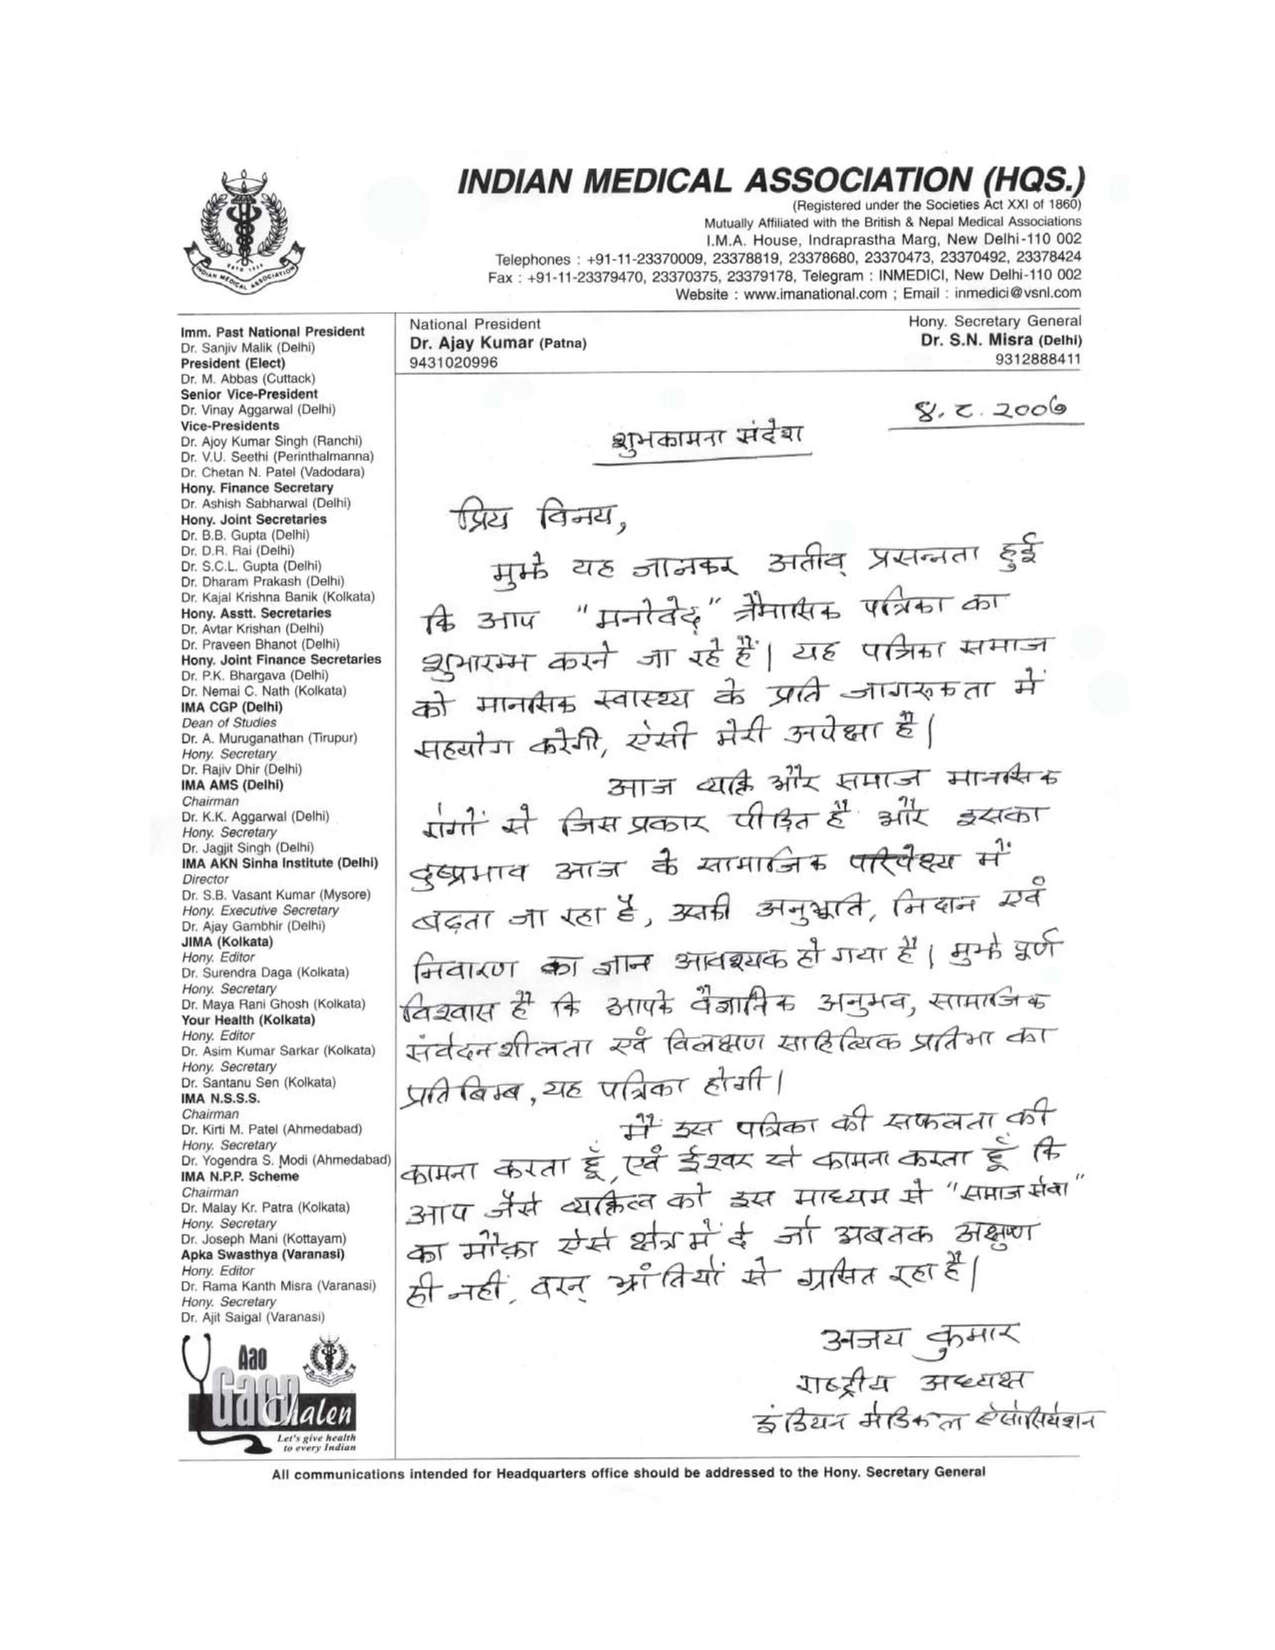 INDIAN MEDICAL ASSOCIATION (HQS.)
(Registered under the Societies Act XXI of 1860)
Mutually Affiliated with the British & Nepal Medical Associations
I.M.A. House, Indraprastha Marg, New Delhi-110 002
Telephones : +91-11-23370009, 23378819, 23378680, 23370473, 23370492, 23378424
Fax : +91-11-23379470, 23370375, 23379178, Telegram : INMEDICI, New Delhi-110 002
Website : www.imanational.com ; Email : inmedici@vsnl.com
INDIAN MEDICAL ASSOCIATION
Imm. Past National President
Dr. Sanjiv Malik (Delhi)
President (Elect)
Dr. M. Abbas (Cuttack)
Senior Vice-President
Dr. Vinay Aggarwal (Delhi)
Vice-Presidents
Dr. Ajoy Kumar Singh (Ranchi)
Dr. V.U. Seethi (Perinthalmanna)
Dr. Chetan N. Patel (Vadodara)
Hony. Finance Secretary
Dr. Ashish Sabharwal (Delhi)
Hony. Joint Secretaries
Dr. B.B. Gupta (Delhi)
Dr. D.R. Rai (Delhi)
Dr. S.C.L. Gupta (Delhi)
Dr. Dharam Prakash (Delhi)
Dr. Kajal Krishna Banik (Kolkata)
Hony. Asstt. Secretaries
Dr. Avtar Krishan (Delhi)
Dr. Praveen Bhanot (Delhi)
Hony. Joint Finance Secretaries
Dr. P.K. Bhargava (Delhi)
Dr. Nemai C. Nath (Kolkata)
IMA CGP (Delhi)
Dean of Studies
Dr. A. Muruganathan (Tirupur)
Hony. Secretary
Dr. Rajiv Dhir (Delhi)
IMA AMS (Delhi)
Chairman
Dr. K.K. Aggarwal (Delhi)
Hony. Secretary
Dr. Jagjit Singh (Delhi)
IMA AKN Sinha Institute (Delhi)
Director
Dr. S.B. Vasant Kumar (Mysore)
Hony. Executive Secretary
Dr. Ajay Gambhir (Delhi)
JIMA (Kolkata)
Hony. Editor
Dr. Surendra Daga (Kolkata)
Hony. Secretary
Dr. Maya Rani Ghosh (Kolkata)
Your Health (Kolkata)
Hony. Editor
Dr. Asim Kumar Sarkar (Kolkata)
Hony. Secretary
Dr. Santanu Sen (Kolkata)
IMA N.S.S.S.
Chairman
Dr. Kirti M. Patel (Ahmedabad)
Hony. Secretary
Dr. Yogendra S. Modi (Ahmedabad)
IMA N.P.P. Scheme
Chairman
Dr. Malay Kr. Patra (Kolkata)
Hony. Secretary
Dr. Joseph Mani (Kottayam)
Apka Swasthya (Varanasi)
Hony. Editor
Dr. Rama Kanth Misra (Varanasi)
Hony. Secretary
Dr. Ajit Saigal (Varanasi)
Aao
Gaon
Chalen
Let's give health
to every Indian
National President
Dr. Ajay Kumar (Patna)
9431020996
Hony. Secretary General
Dr. S.N. Misra (Delhi)
9312888411
४.८.२००७
शुभकामना संदेश
प्रिय विनय,
मुझे यह जानकर अतीव् प्रसन्नता हुई
कि आप "मनोवेद" त्रैमासिक पत्रिका का
शुभारम्भ करने जा रहे हैं। यह पत्रिका समाज
को मानसिक स्वास्थ्य के प्रति जागरूकता में
सहयोग करेगी, ऐसी मेरी अपेक्षा है।
आज व्यक्ति और समाज मानसिक
रोगों से जिस प्रकार पीड़ित है और इसका
दुष्प्रभाव आज के सामाजिक परिपेक्ष्य में
बढ़ता जा रहा है, उसकी अनुभूति, निदान एवं
निवारण का ज्ञान आवश्यक हो गया है। मुझे पूर्ण
विश्वास है कि आपके वैज्ञानिक अनुभव, सामाजिक
संवेदनशीलता एवं विलक्षण साहित्यिक प्रतिभा का
प्रतिबिम्ब, यह पत्रिका होगी।
मैं इस पत्रिका की सफलता की
कामना करता हूँ, एवं ईश्वर से कामना करता हूँ कि
आप जैसे व्यक्तित्व को इस माध्यम से "समाज सेवा"
का मौक़ा ऐसे क्षेत्र में दे जो अबतक अक्षुण्ण
ही नहीं, वरन् भ्रांतियों से ग्रसित रहा है।
अजय कुमार
राष्ट्रीय अध्यक्ष
इंडियन मेडिकल ऐसोसियेशन
All communications intended for Headquarters office should be addressed to the Hony. Secretary General